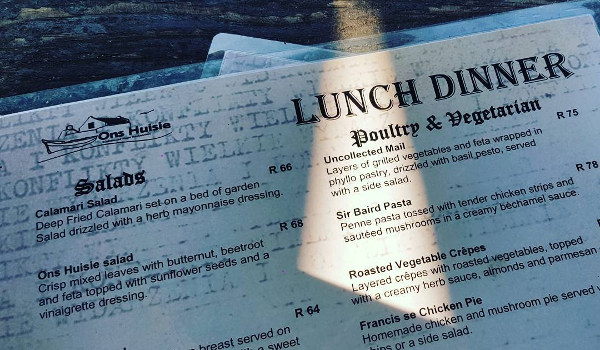 LUNCH DINNER
Ons Huisie
Salads
Calamari Salad
R 66
Deep Fried Calamari set on a bed of garden
Salad drizzled with a herb mayonnaise dressing.
Ons Huisie salad
R 68
Crisp mixed leaves with butternut, beetroot
and feta topped with sunflower seeds and a
vinaigrette dressing.
R 64
breast served on
with a sweet
Poultry & Vegetarian
Uncollected Mail
R 75
Layers of grilled vegetables and feta wrapped in
phyllo pastry, drizzled with basil pesto, served
with a side salad.
Sir Baird Pasta
R 78
Penne pasta tossed with tender chicken strips and
sautéed mushrooms in a creamy béchamel sauce.
Roasted Vegetable Crêpes
Layered crêpes with roasted vegetables, topped
with a creamy herb sauce, almonds and parmesan
Francis se Chicken Pie
Homemade chicken and mushroom pie served
or a side salad.